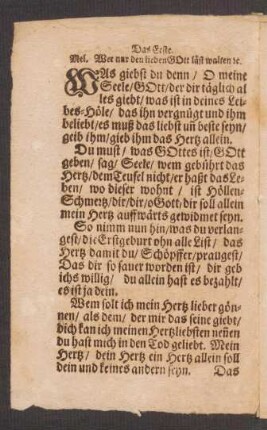 Das Erste.
Mel. Wer nur den lieben GOtt läst walten ꝛc.
WAs giebst du denn / O meine
Seele/GOtt/der dir täglich al
les giebt/was ist in deines Lei-
bes-Höle/ das ihn vergnügt und ihm
beliebt/es muß das liebst uñ beste seyn/
geib ihm/gieb ihm das Hertz allein.
Du must / was GOttes ist/ GOtt
geben/ sag/ Seele/ wem gebührt das
Hertz/dem Teufel nicht/er haßt das Le-
ben/ wo dieser wohnt / ist Höllen-
Schmertz/dir/dir/o Gott/dir soll allein
mein Hertz auffwärts gewidmet seyn.
So nimm nun hin/was du verlan-
gest/die Erstgeburt ohn alle List/ das
Hertz damit du/Schöpffer/prangest/
Das dir so sauer worden ist/ dir geb
ichs willig/ du allein hast es bezahlt/
es ist ja dein.
Wem solt ich mein Hertz lieber gön-
nen/als dem/ der mir das seine giebt/
dich kan ich meinen Hertzliebsten neñen
du hast mich in den Tod geliebt. Mein
Hertz/ dein Hertz ein Hertz allein soll
dein und keines andern seyn. Das